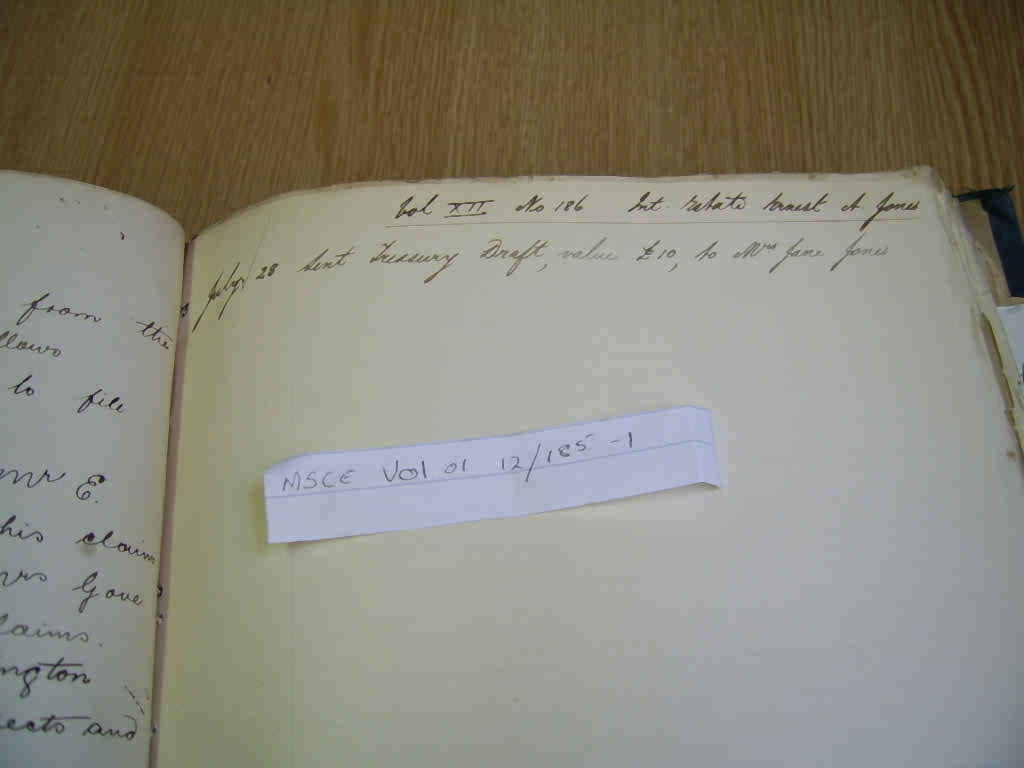 from the
llows
to file
Mr E.
his claims
Mrs Gove
laims.
ngton
ects and
Vol XII No 186 Int. Estate Ernest A. Jones
July 28 Sent Treasury Draft, value £10, to Mrs Jane Jones
MSCE Vol 01 12/185-1